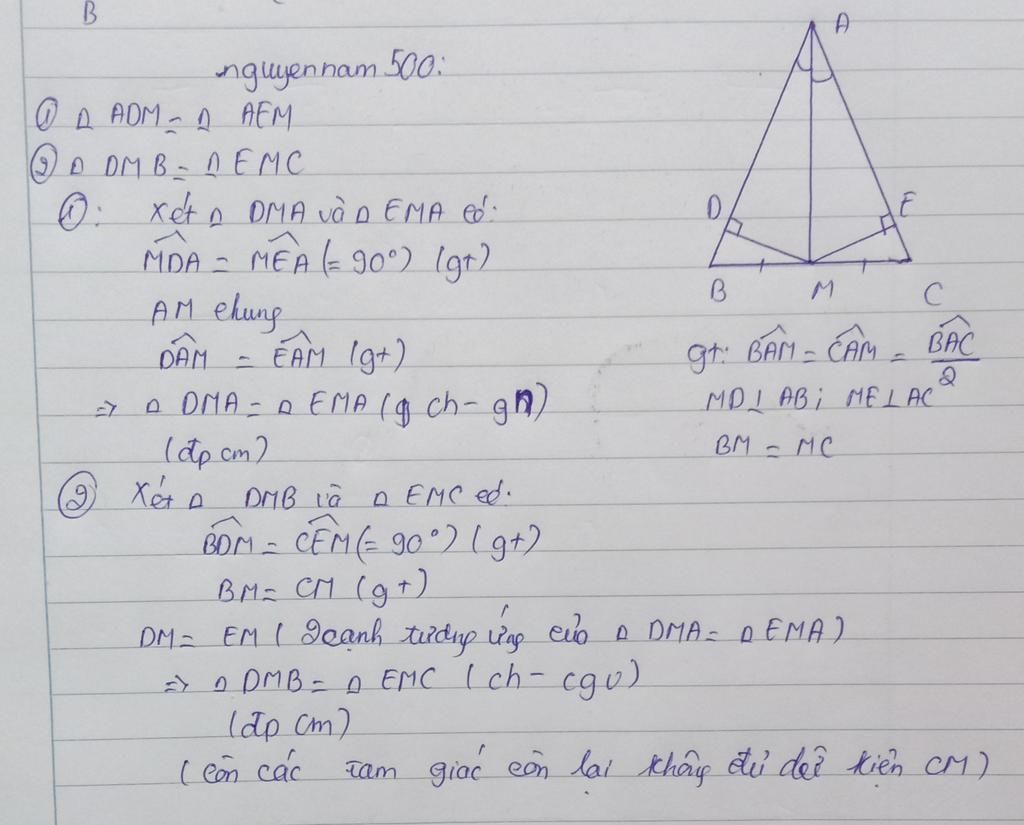 B
nguyennam 500:
① Δ ADM = Δ AEM
② Δ DMB = Δ EMC
①: Xét Δ DMA và Δ EMA có:
MDA = MEA (= 90°) (gt)
AM chung
DAM = EAM (gt)
=> Δ DMA = Δ EMA ( ch - gn)
(đpcm)
② Xét Δ DMB và Δ EMC có:
BDM = CEM (= 90°) (gt)
BM = CM (gt)
DM = EM ( 2 cạnh tương ứng của Δ DMA = Δ EMA )
=> Δ DMB = Δ EMC ( ch - cgv)
(đpcm)
(còn các tam giác còn lại không đủ dữ kiện CM)
A
D E
B M C
gt: BAM = CAM = BAC / 2
MD ⊥ AB ; ME ⊥ AC
BM = MC